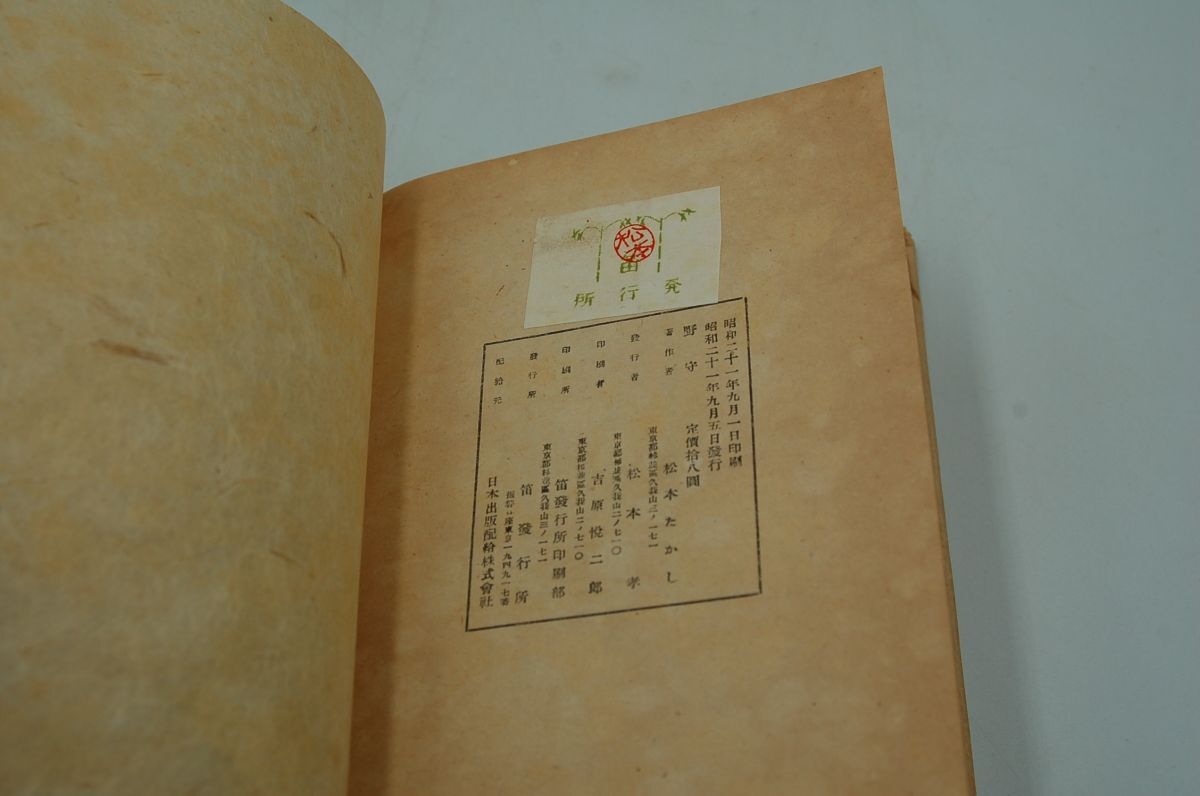 笛
発行所
昭和二十一年九月一日印刷
昭和二十一年九月五日發行
野守 定價拾八圓
著作者 松本たかし
發行者 東京都杉並區久我山二ノ七一〇
松本孝
印刷者 東京都杉並區久我山二ノ七一〇
吉原悦二郎
印刷所 笛發行所印刷部
發行所 東京都杉並區久我山三ノ一七一
笛發行所
振替口座東京一九四九一七番
配給元 日本出版配給株式會社